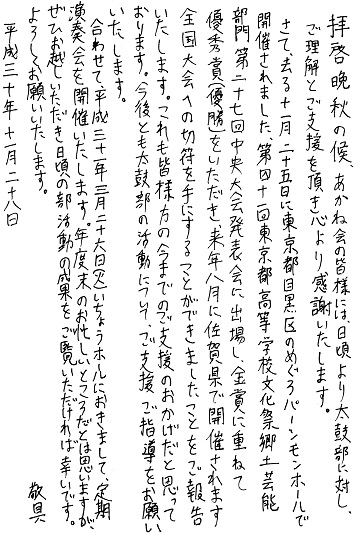 拝啓 晩秋の候、あかね会の皆様には、日頃より太鼓部に対し、
ご理解とご支援を頂き心より感謝いたします。
さて、去る十一月二十五日に東京都目黒区のめぐろパーシモンホールで
開催されました、第四十一回東京都高等学校文化祭郷土芸能
部門第二十七回中央大会発表会に出場し、金賞に重ねて
優秀賞(優勝)をいただき、来年八月に佐賀県で開催されます
全国大会への切符を手にすることができましたことをご報告
いたします。これも皆様方の今までのご支援のおかげだと思って
おります。今後とも太鼓部の活動について、ご支援、ご指導をお願い
いたします。
合わせて、平成三十一年三月二十六日(火)いちょうホールにおきまして、定期
演奏会を開催いたします。年度末のお忙しいところだとは思いますが、
ぜひお越しいただき、日頃の部活動の成果をご覧いただければ幸いです。
よろしくお願いいたします。
敬具
平成三十年十一月二十八日